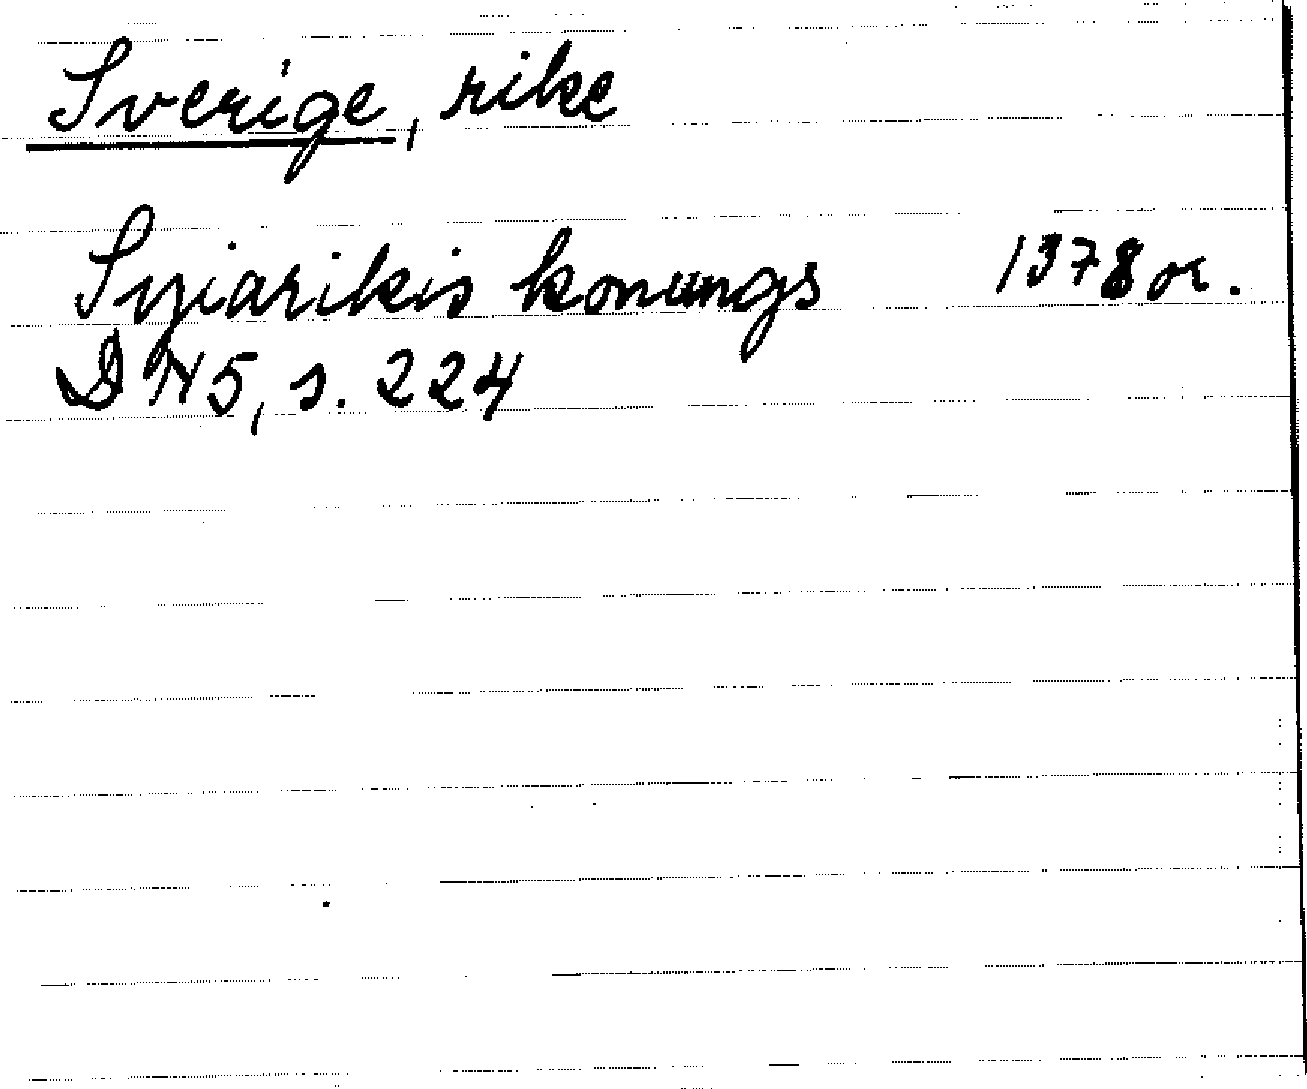 Sverige, rike
Syiarikis konungs 1378 or.
DN5, s. 224